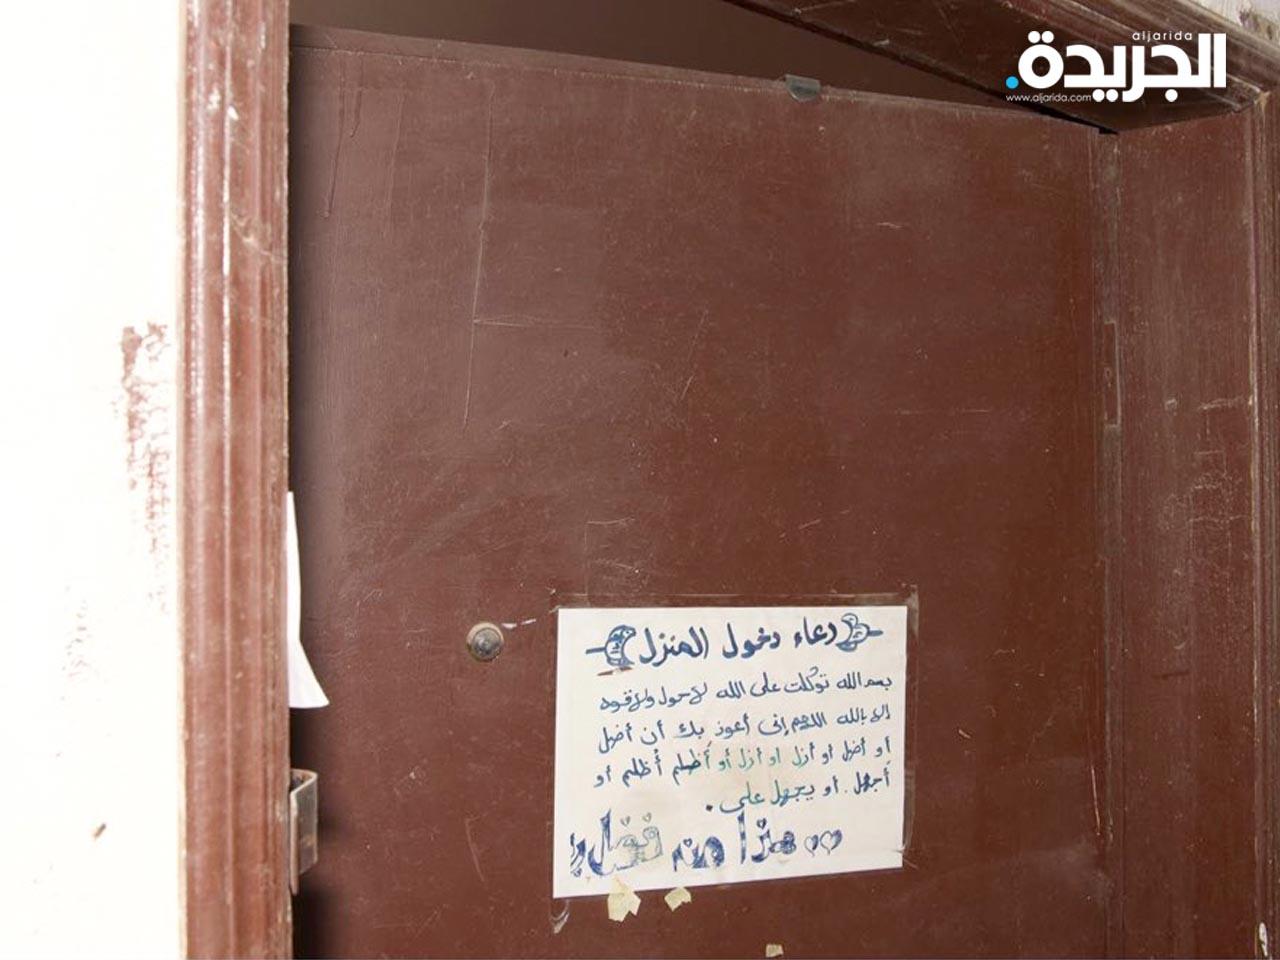 aljarida
الجريدة.
www.aljarida.com
دعاء دخول المنزل
بسم الله توكلت على الله لاحول ولاقوه
إلا بالله اللهم إني أعوذ بك أن أضل
أو أضل أو أزل أو أزل أو أظلم أظلم أو
أجهل. أو يجهل على.
هذا من فضل